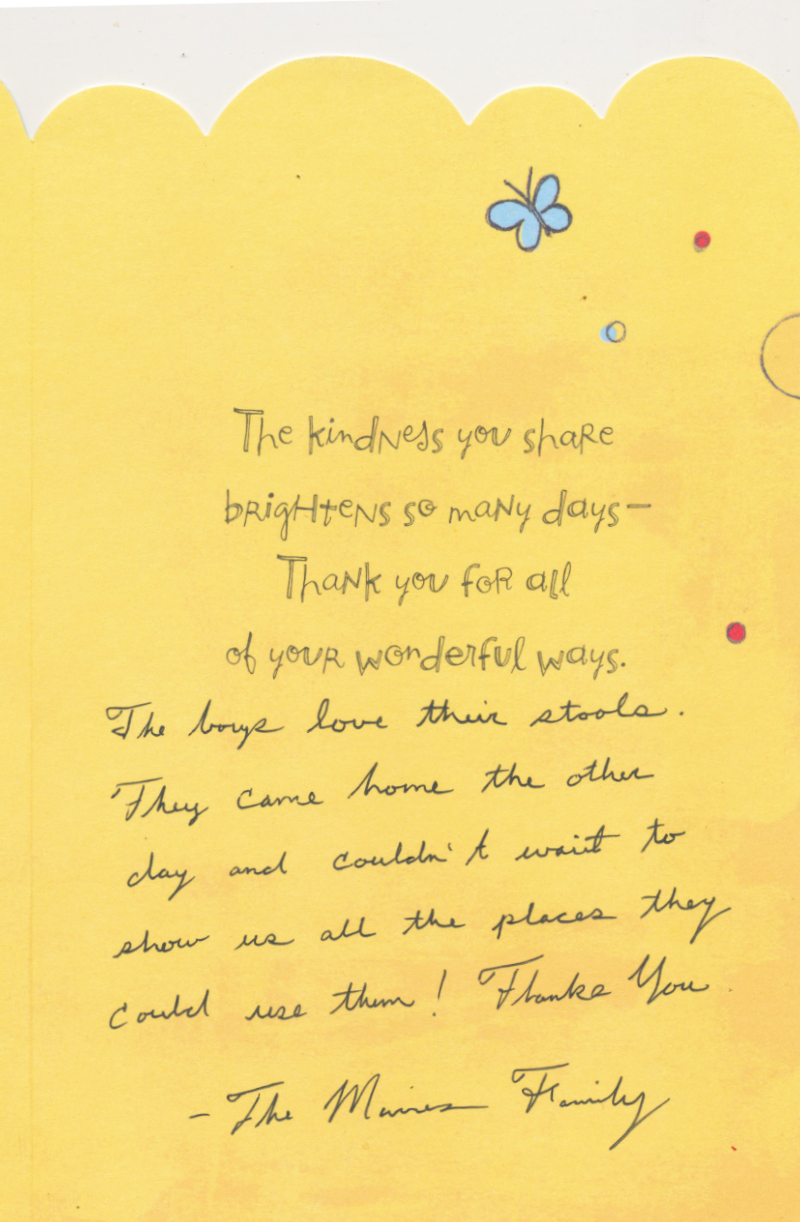 The kindness you share
brightens so many days—
Thank you for all
of your wonderful ways.
The boys love their stools.
They came home the other
day and couldn't wait to
show us all the places they
could use them! Thanke You.
- The Family